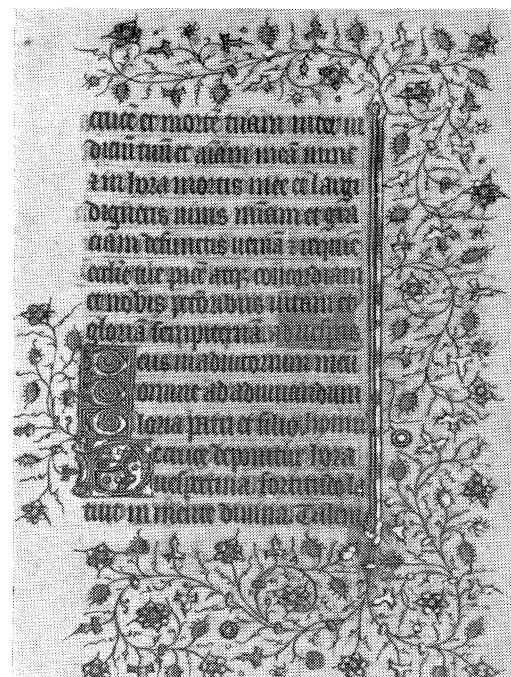 crucē et mortē tuam inter iu
diciū tuū et aīam meā nunc
⁊ in hora mortis mee et largi
digneris uiuis mīam et grā
ciam defunctis ueniā ⁊ requiē
ecclīe tue pacē atqꝫ concordiam
et nobis pctōribus uitam et
gloriā sempiternā.
eus in adiutorium meū
omine ad adiuuandum
loria patri et filio. hymnꝰ
De cruce deponitur hora
uespertina. fortitudo la
tuit in mente diuina. Talem